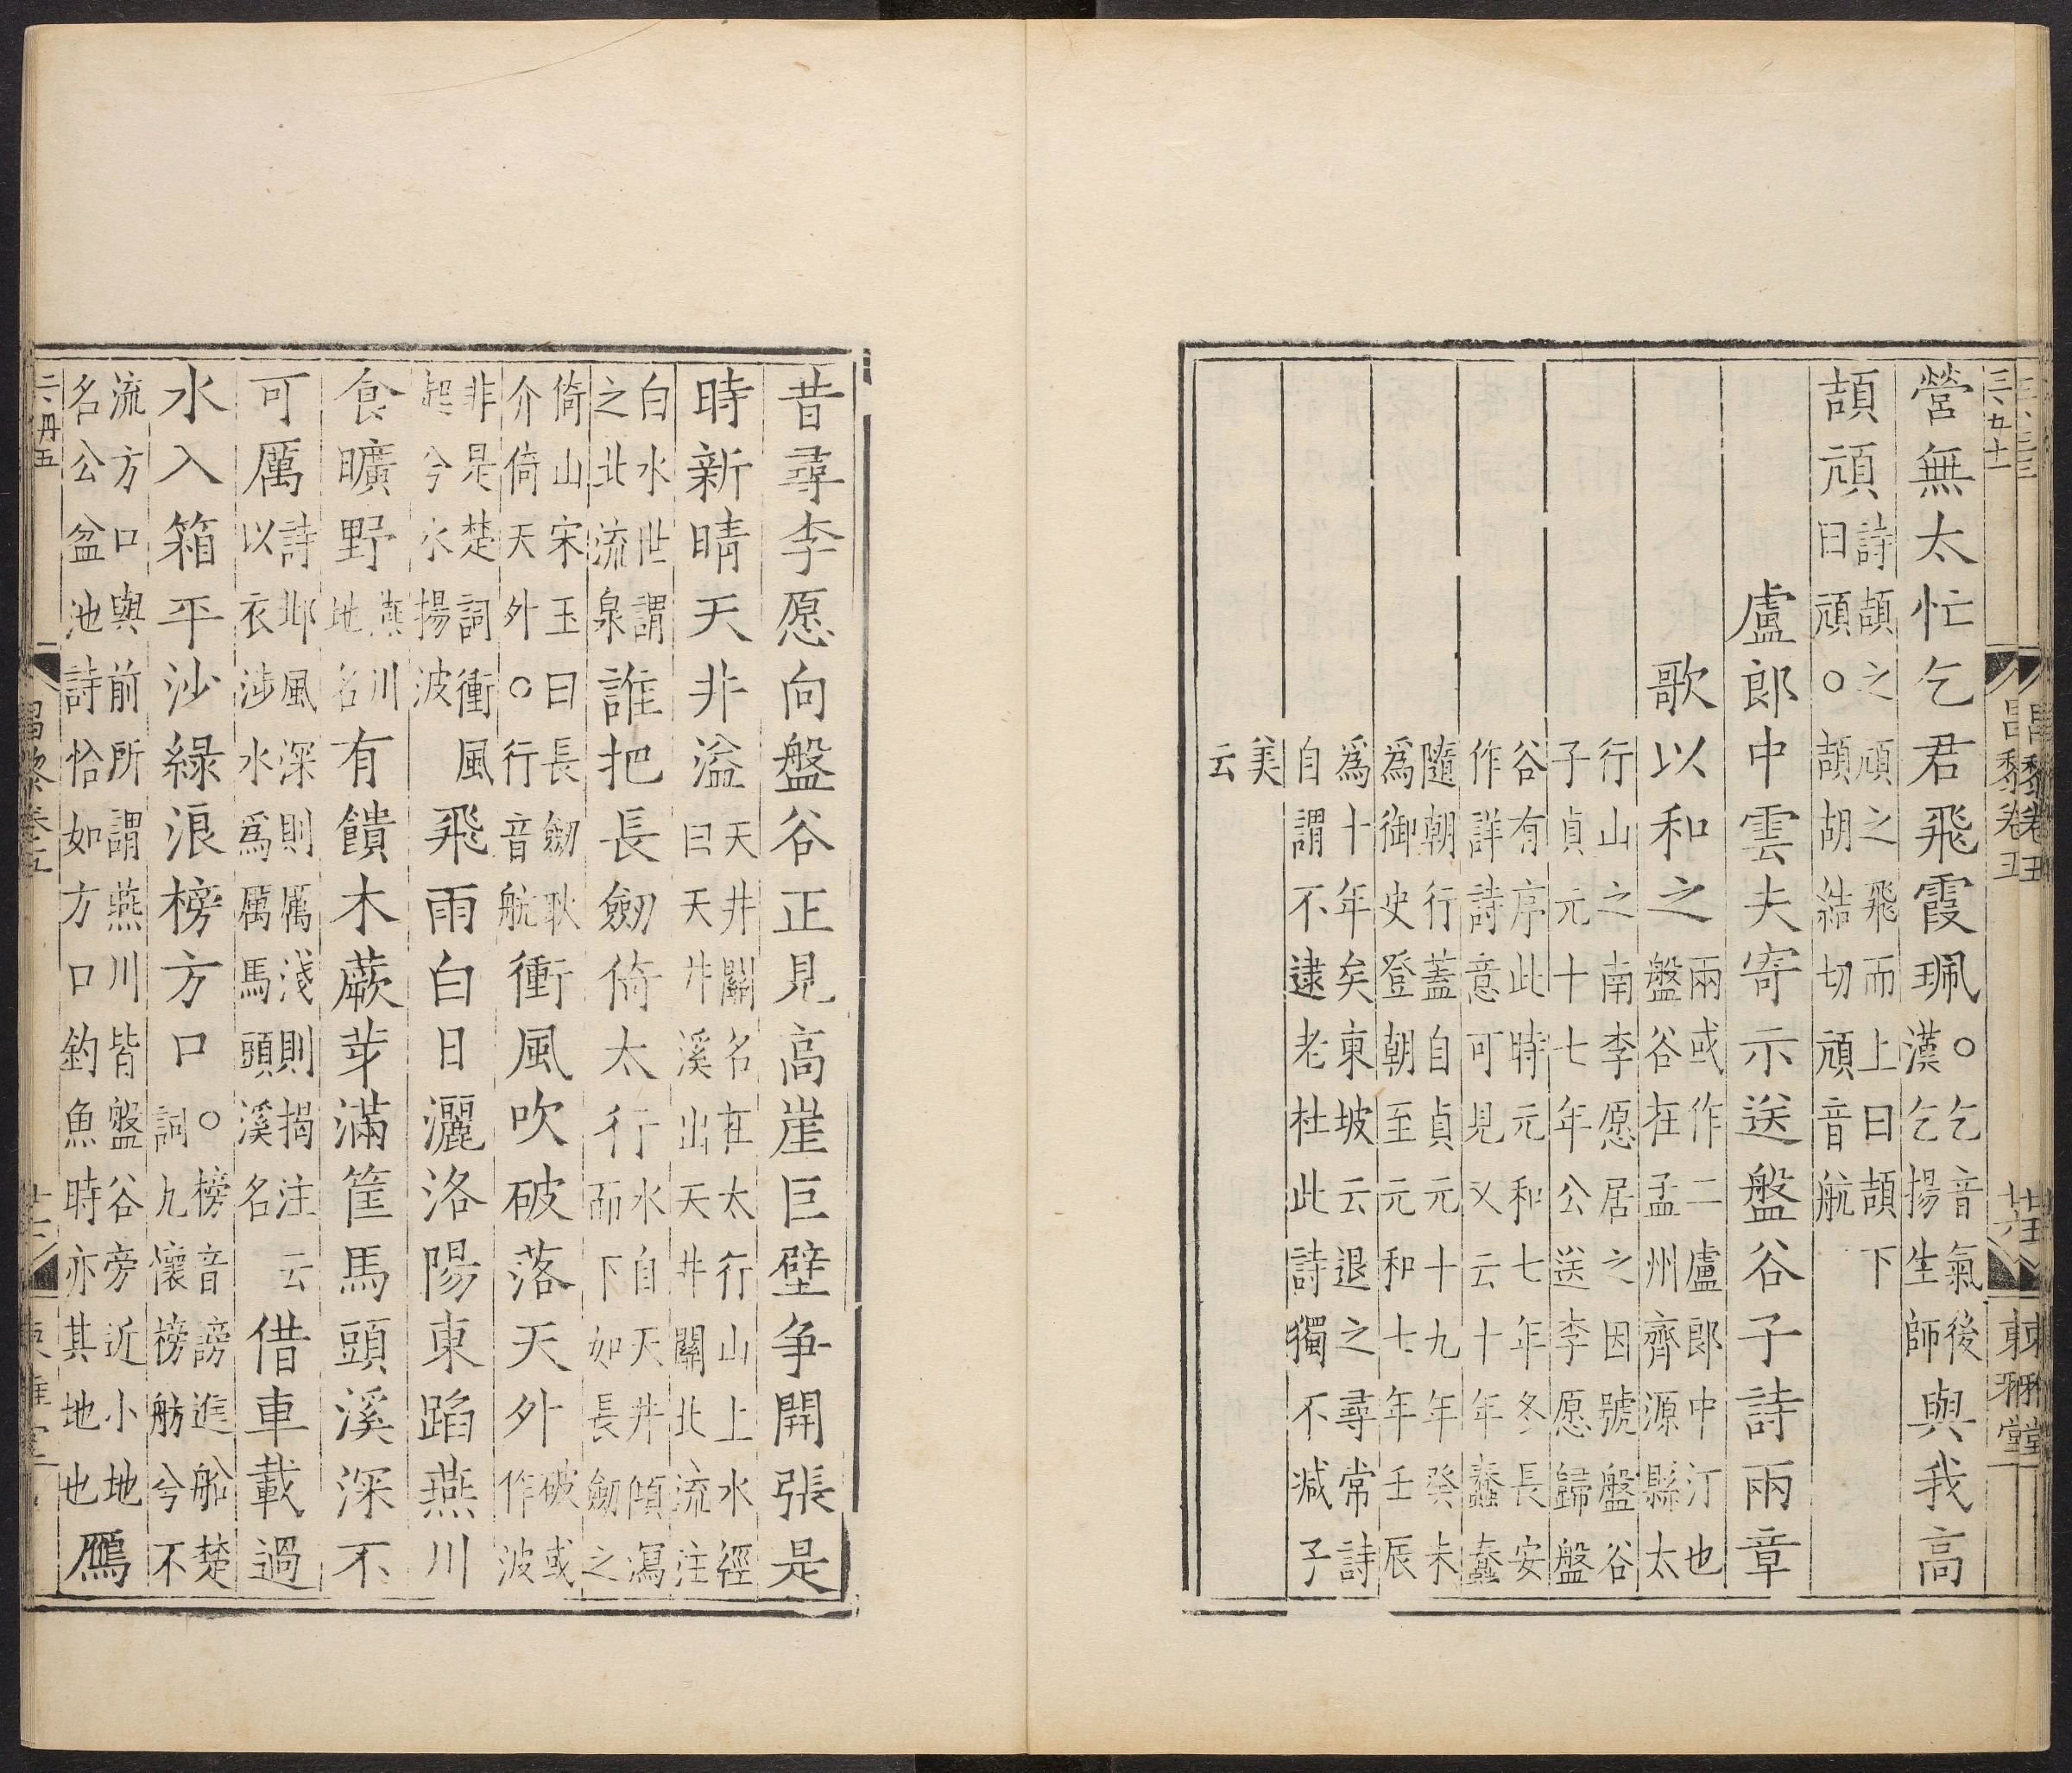 營無太忙乞君飛霞珮○乞音氣後漢乞揚生師與我高
頡頏詩頡之頏之飛而上曰頡下曰頏○頡胡結切頏音航
盧郎中雲夫寄示送盤谷子詩兩章
歌以和之兩或作二盧郎中汀也盤谷在孟州齊源縣太
行山之南李愿居之因號盤谷子貞元十七年公送李愿歸盤
谷有序此時元和七年冬長安作詳詩意可見又云十年蠢蠢
隨朝行蓋自貞元十九年癸未爲御史登朝至元和七年壬辰
爲十年矣東坡云退之尋常詩自謂不逮老杜此詩獨不減子
美云
昔尋李愿向盤谷正見高崖巨壁争開張是
時新晴天井溢天井關名在太行山上水經曰天井溪出天井關北流注
白水世謂之北流泉誰把長劒倚太行水自天井傾瀉而下如長劒之
倚山宋玉曰長劒耿介倚天外○行音航衝風吹破落天外破或作波
非是楚詞衝風起兮水揚波飛雨白日灑洛陽東蹈燕川
食曠野燕川地名有饋木蕨芽滿筐馬頭溪深不
可厲詩邶風深則厲淺則揭注云以衣涉水爲厲馬頭溪名借車載過
水入箱平沙綠浪榜方口○榜音謗進船楚詞九懷榜舫兮不
流方口與前所謂燕川皆盤谷旁近小地名公盆池詩恰如方口釣魚時亦其地也鴈
昌黎卷五
東雅堂